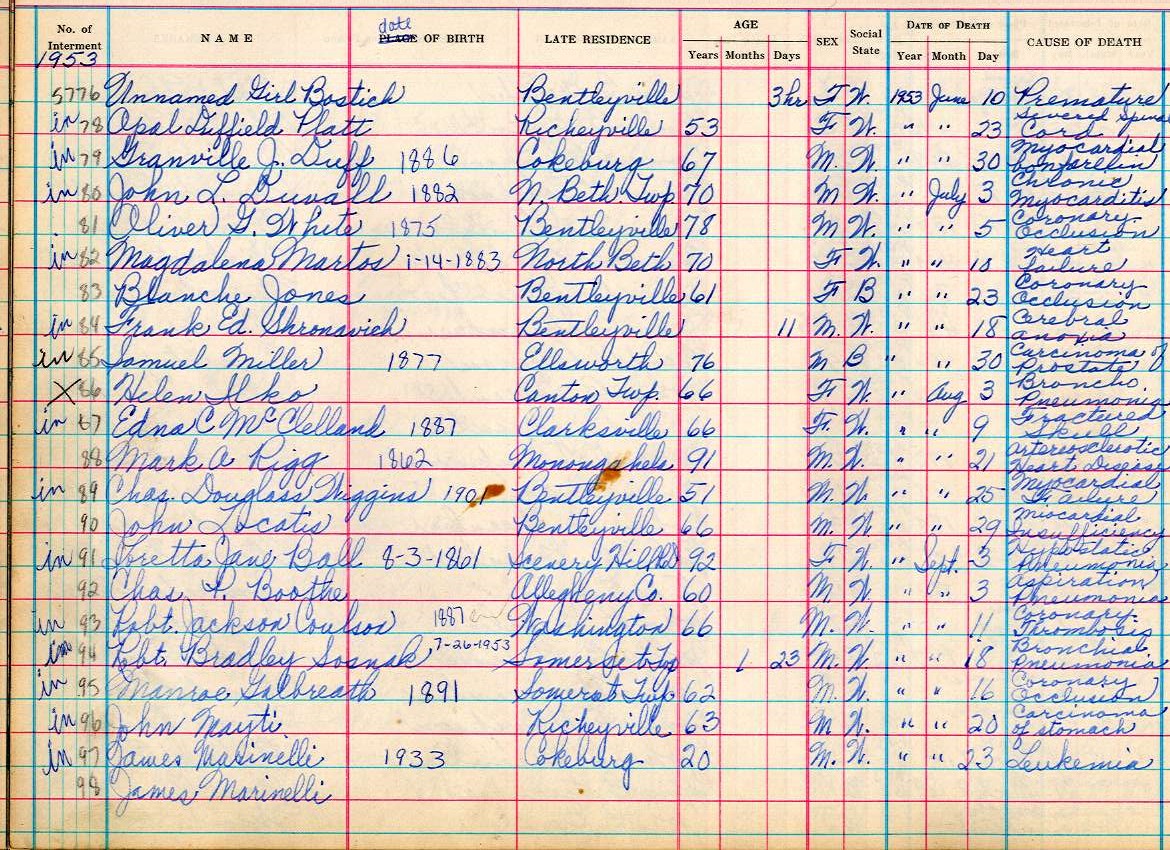 No. of Interment NAME date PLACE OF BIRTH LATE RESIDENCE AGE Years Months Days SEX Social State DATE OF DEATH Year Month Day CAUSE OF DEATH
1953
5776 Unnamed Girl Bostich Bentleyville 3hr F W. 1953 June 10 Premature
in 78 Opal Diffield Platt Richeyville 53 F W. " " 23 Severed Spinal Cord
in 79 Granville J. Duff 1886 Cokeburg 67 M. W. " " 30 Myocardial
in 80 John L. Duvall 1882 N. Beth. Twp 70 M W. " July 3 Chronic Myocarditis
81 Oliver G. White 1875 Bentleyville 78 M W. " " 5 Coronary Occlusion
in 82 Magdalena Martos 1-14-1883 North Beth 70 F W. " " 18 Heart Failure
83 Blanche Jones Bentleyville 61 F B " " 23 Coronary Occlusion
in 84 Frank Ed. Shronavich Bentleyville 11 M. W. " " 18 Cerebral anoxia
in 85 Samuel Miller 1877 Ellsworth 76 M B " " 30 Carcinoma of Prostate
X 86 Helen Ilko Canton Twp. 66 F W. " Aug 3 Broncho. Pneumonia
in 87 Edna C McClelland 1887 Clarksville 66 F. W. " " 9 Fractured Skull
88 Mark A Rigg 1862 Monongahela 91 M W. " " 21 Arteriosclerotic Heart Disease
in 89 Chas. Douglass Wiggins 1901 Bentleyville 51 M. W. " " 25 Myocardial Failure
90 John Locatis Bentleyville 66 M. W. " " 29 Miocardial Insufficiency
in 91 Loretta Jane Ball 8-3-1861 Scenery Hill Rd 92 F W. " Sept. 3 Hypostatic Pneumonia
92 Chas. P. Boothe Allegheny Co. 60 M W. " " 3 Aspiration Pneumonia
in 93 Robt. Jackson Coulson 1887 Washington 66 M. W. " " 11 Coronary Thrombosis
in 94 Robt. Bradley Sosnak, 7-26-1953 Somerset Twp 1 23 M. W. " " 18 Bronchial Pneumonia
in 95 Manroe Galbreath 1891 Somerset Twp 62 M. W. " " 16 Coronary Occlusion
in 96 John Mayti. Richeyville 63 M W. " " 20 Carcinoma of stomach
in 97 James Marinelli 1933 Cokeburg 20 M. W. " " 23 Leukemia
98 James Marinelli